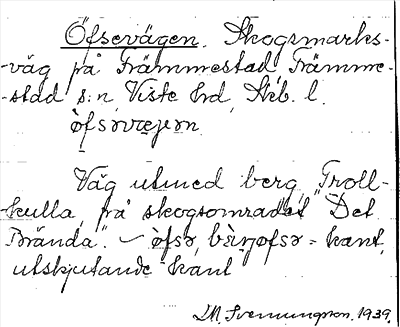 Öfsevägen. Skogsmarks-
-väg på Främmestad, Främme-
-stad s:n, Viste hd, Skb. l.
òfsəvæjən
Väg utmed berg, "Troll-
kulla, på skogsområdet "Det
Brända". – òfsə, bærjofsə = kant,
utskjutande kant
M. Svenungson. 1939.